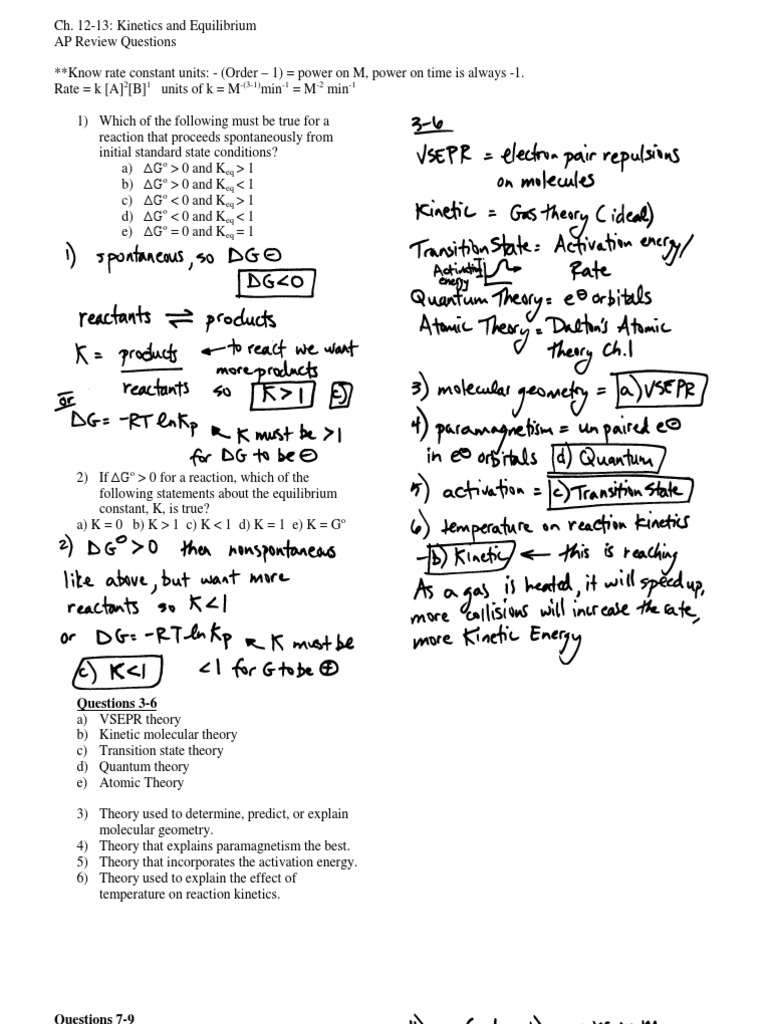 Ch. 12-13: Kinetics and Equilibrium
AP Review Questions
**Know rate constant units: - (Order – 1) = power on M, power on time is always -1.
Rate = k [A]²[B]¹ units of k = M⁻⁽³⁻¹⁾min⁻¹ = M⁻² min⁻¹
1) Which of the following must be true for a
reaction that proceeds spontaneously from
initial standard state conditions?
a) ΔG° > 0 and Keq > 1
b) ΔG° > 0 and Keq < 1
c) ΔG° < 0 and Keq > 1
d) ΔG° < 0 and Keq < 1
e) ΔG° = 0 and Keq = 1
1) spontaneous, so DG ⊖
DG<0
reactants ⇌ products
K = products ← to react we want
more products
reactants so K>1 c)
or
DG = -RT ln Kp ↖ K must be >1
for DG to be ⊖
2) If ΔG° > 0 for a reaction, which of the
following statements about the equilibrium
constant, K, is true?
a) K = 0 b) K > 1 c) K < 1 d) K = 1 e) K = G°
2) DG°>0 then nonspontaneous
like above, but want more
reactants so K<1
or DG = -RT ln Kp ↖ K must be
c) K<1 <1 for G to be ⊕
Questions 3-6
a) VSEPR theory
b) Kinetic molecular theory
c) Transition state theory
d) Quantum theory
e) Atomic Theory
3) Theory used to determine, predict, or explain
molecular geometry.
4) Theory that explains paramagnetism the best.
5) Theory that incorporates the activation energy.
6) Theory used to explain the effect of
temperature on reaction kinetics.
Questions 7-9
3-6
VSEPR = electron pair repulsions
on molecules
Kinetic = Gas theory (ideal)
Transition State = Activation energy/
Activation
energy
Rate
Quantum Theory = e⊖ orbitals
Atomic Theory = Dalton's Atomic
Theory Ch.1
3) molecular geometry = a) VSEPR
4) paramagnetism = unpaired e⊖
in e⊖ orbitals d) Quantum
5) activation = c) Transition State
6) temperature on reaction kinetics
- b) Kinetic ← this is reaching
As a gas is heated, it will speed up,
more collisions will increase the rate,
more Kinetic Energy